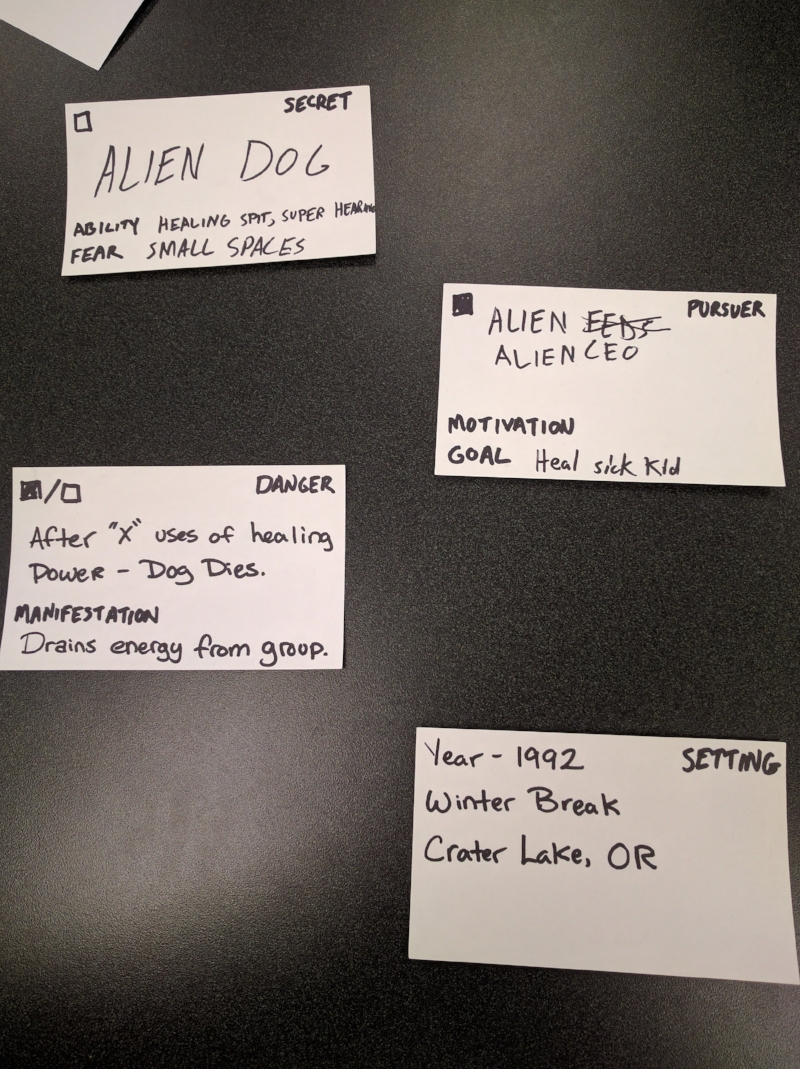 SECRET
ALIEN DOG
ABILITY HEALING SPIT, SUPER HEARING
FEAR SMALL SPACES
PURSUER
ALIEN FEDS
ALIEN CEO
MOTIVATION
GOAL Heal sick Kid
DANGER
After "X" uses of healing
Power - Dog Dies.
MANIFESTATION
Drains energy from group.
Year - 1992 SETTING
Winter Break
Crater Lake, OR